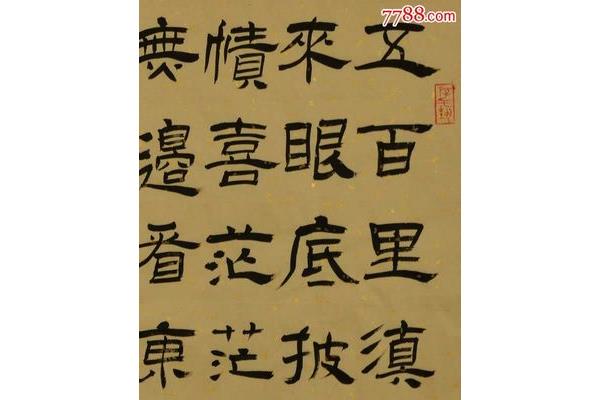 7788.com
五百里滇
來眼底披
幘喜茫茫
無邊看東